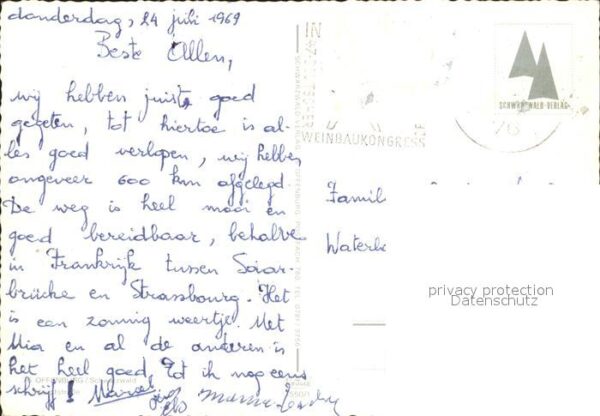 donderdag, 24 juli 1969
Beste Allen,
wij hebben juist goed
gegeten, tot hiertoe is al-
les goed verlopen, wij hebben
ongeveer 600 km afgelegd
De weg is heel mooi en
goed bereidbaar, behalve
in Frankrijk tussen Saar-
brücke en Strassbourg. Het
is een zonnig weertje. Met
Mia en al de anderen is
het heel goed, tot ik nog eens
schrijf! Marcel
IN
WEINBAUKONGRESS
SCHWARZWALD-VERLAG
76
Famil
Waterl
privacy protection
Datenschutz
OFFENBURG / Schwarzwald